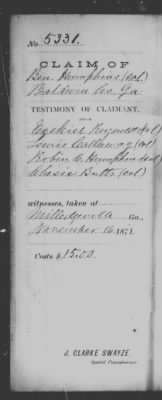 No. 5331.
CLAIM OF
Ben Humphries (Col)
Baldwin Co. Ga.
TESTIMONY OF CLAIMANT,
Ezekiel (Col)
Lewis (Col)
Robin C. Humphries (Col)
Butts (Col)
witnesses, taken at
Milledgeville Ga.,
November 16, 1871.
Costs $15.00
J. CLARKE SWAYZE,
Special Commissioner.